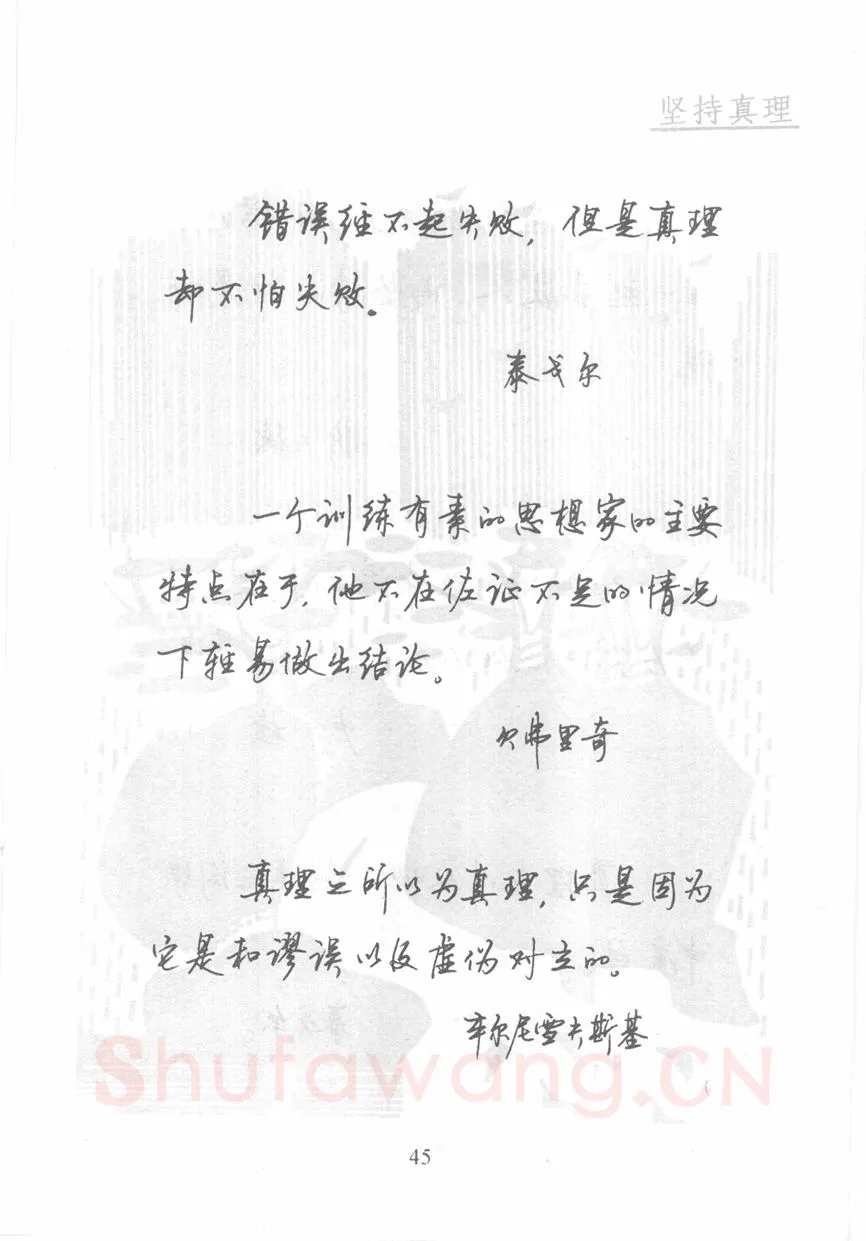 坚持真理
错误经不起失败，但是真理
却不怕失败。
泰戈尔
一个训练有素的思想家的主要
特点在于，他不在佐证不足的情况
下轻易做出结论。
贝弗里奇
真理之所以为真理，只是因为
它是和谬误以及虚伪对立的。
车尔尼雪夫斯基
Shufawang.CN
45